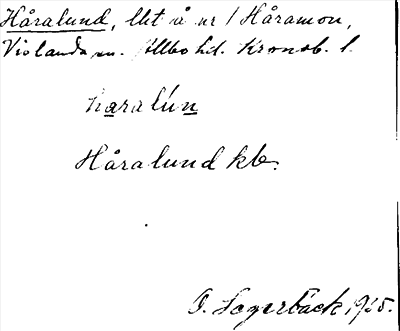 Håralund, lht å nr 1 Håramon,
Vislanda sn. Allbo hd. Kronob. l.
haralún
Håralund kb.
O. Lagerbäck 1925.